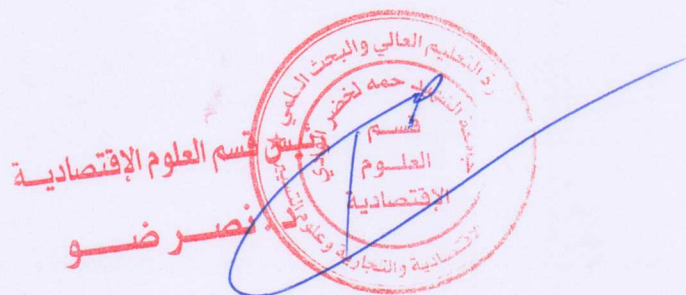 وزارة التعليم العالي والبحث العلمي
جامعة الشهيد حمه لخضر الوادي
قسم
العلــوم
الإقتصادية
الإقتصادية والتجارية وعلوم التسيير
رئيس قسم العلوم الإقتصاديـة
د. نصــر ضــو